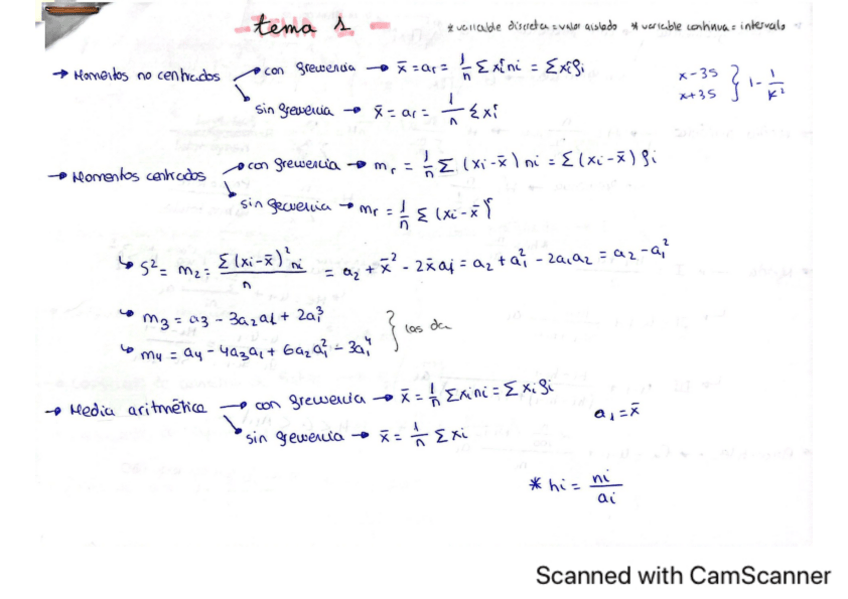 - tema 1 -
* variable discreta = valor aislado * variable continua = intervalo
→ Momentos no centrados → con frecuencia → x̄ = ar = 1/n Σ xiʳ ni = Σ xiʳ fi
sin frecuencia → x̄ = ar = 1/n Σ xiʳ
x - 3S
x + 3S } 1 - 1/K²
→ Momentos centrados → con frecuencia → mr = 1/n Σ (xi - x̄) ni = Σ (xi - x̄) fi
sin frecuencia → mr = 1/n Σ (xi - x̄)ʳ
↳ S² = m2 = Σ (xi - x̄)² ni / n = a2 + x̄² - 2x̄a1 = a2 + a1² - 2a1a2 = a2 - a1²
↳ m3 = a3 - 3a2a1 + 2a1³
↳ m4 = a4 - 4a3a1 + 6a2a1² - 3a1⁴ } las da
→ Media aritmética → con frecuencia → x̄ = 1/n Σ xi ni = Σ xi fi
sin frecuencia → x̄ = 1/n Σ xi
a1 = x̄
* hi = ni / ai
Scanned with CamScanner